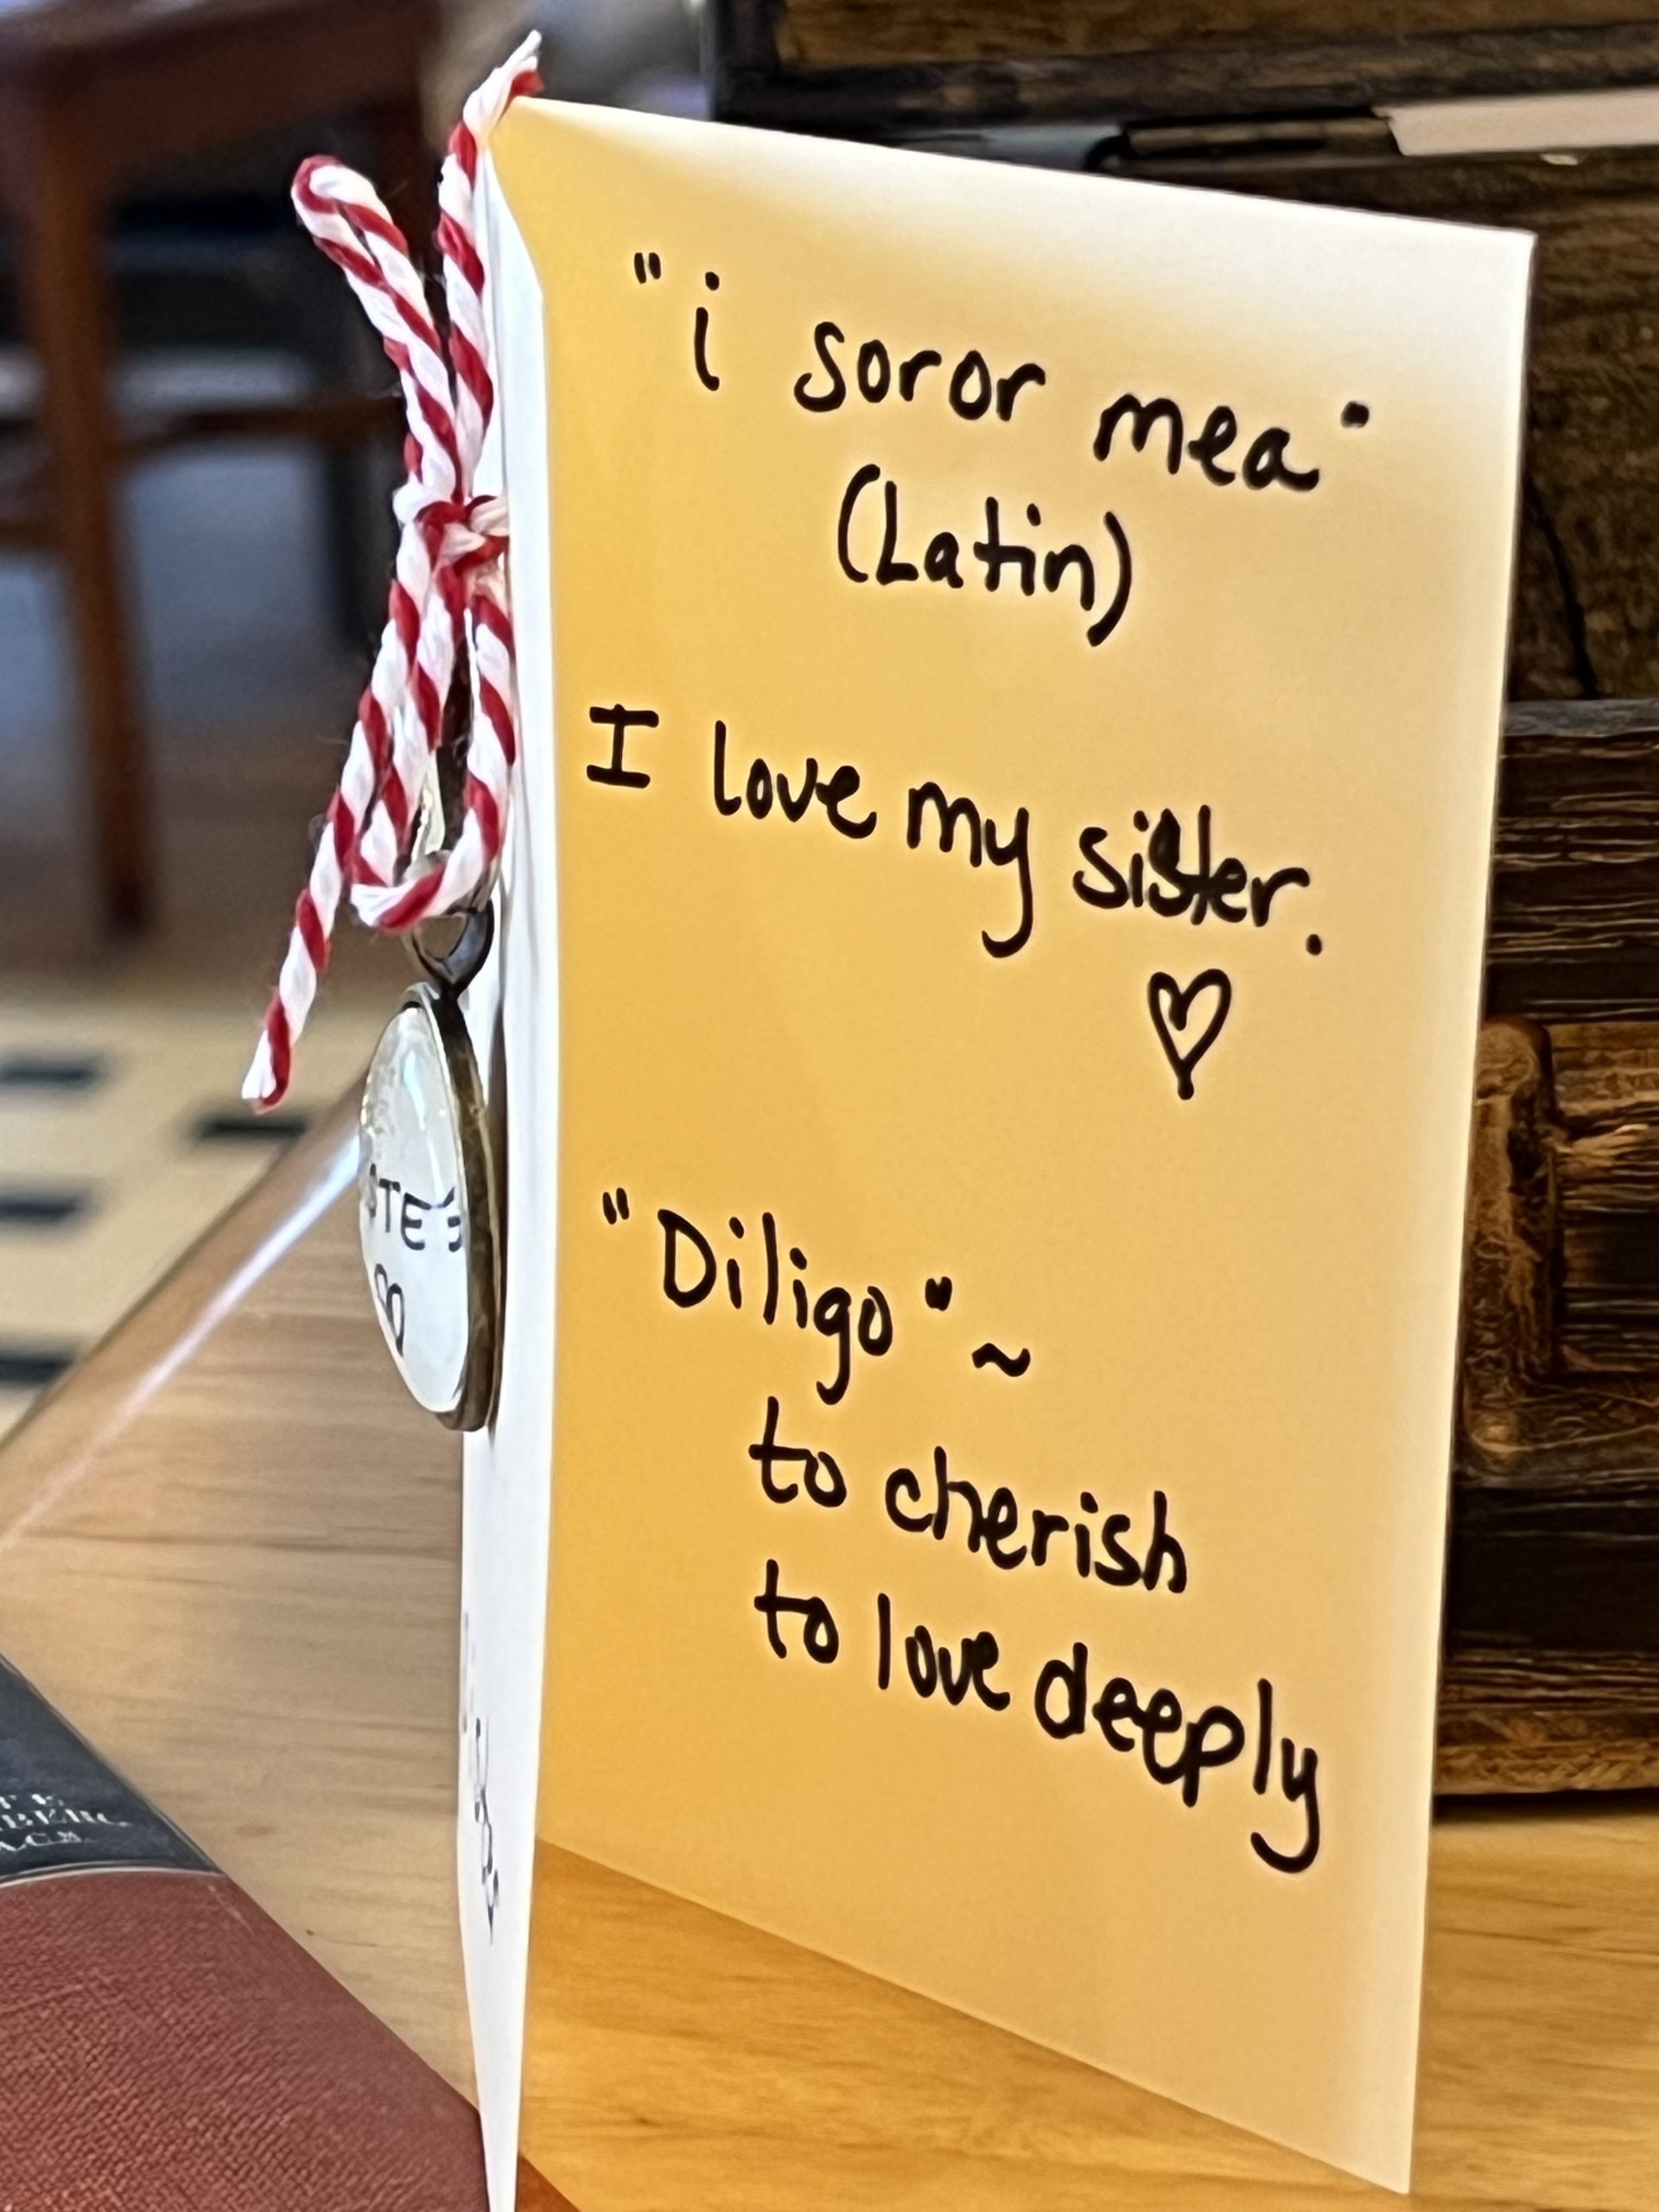 "i soror mea"
(Latin)
I love my sister.
"Diligo" ~
to cherish
to love deeply